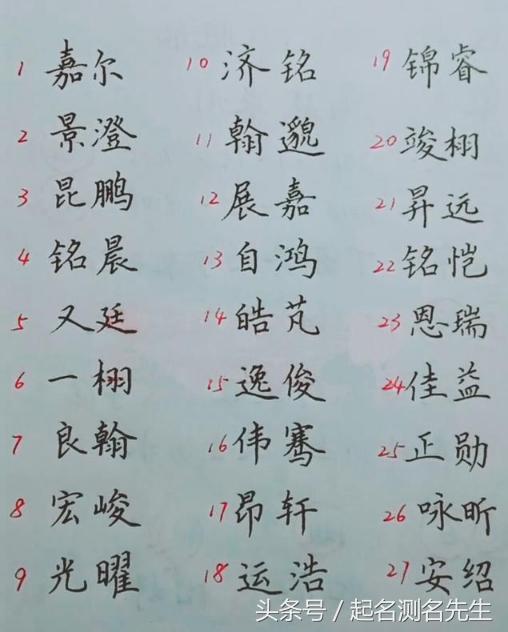 1 嘉尔
2 景澄
3 昆鹏
4 铭晨
5 又廷
6 一栩
7 良翰
8 宏峻
9 光曜
10 济铭
11 翰邈
12 展嘉
13 自鸿
14 皓芃
15 逸俊
16 伟骞
17 昂轩
18 运浩
19 锦睿
20 竣栩
21 昇远
22 铭恺
23 恩瑞
24 佳益
25 正勋
26 咏昕
27 安绍
头条号 / 起名测名先生